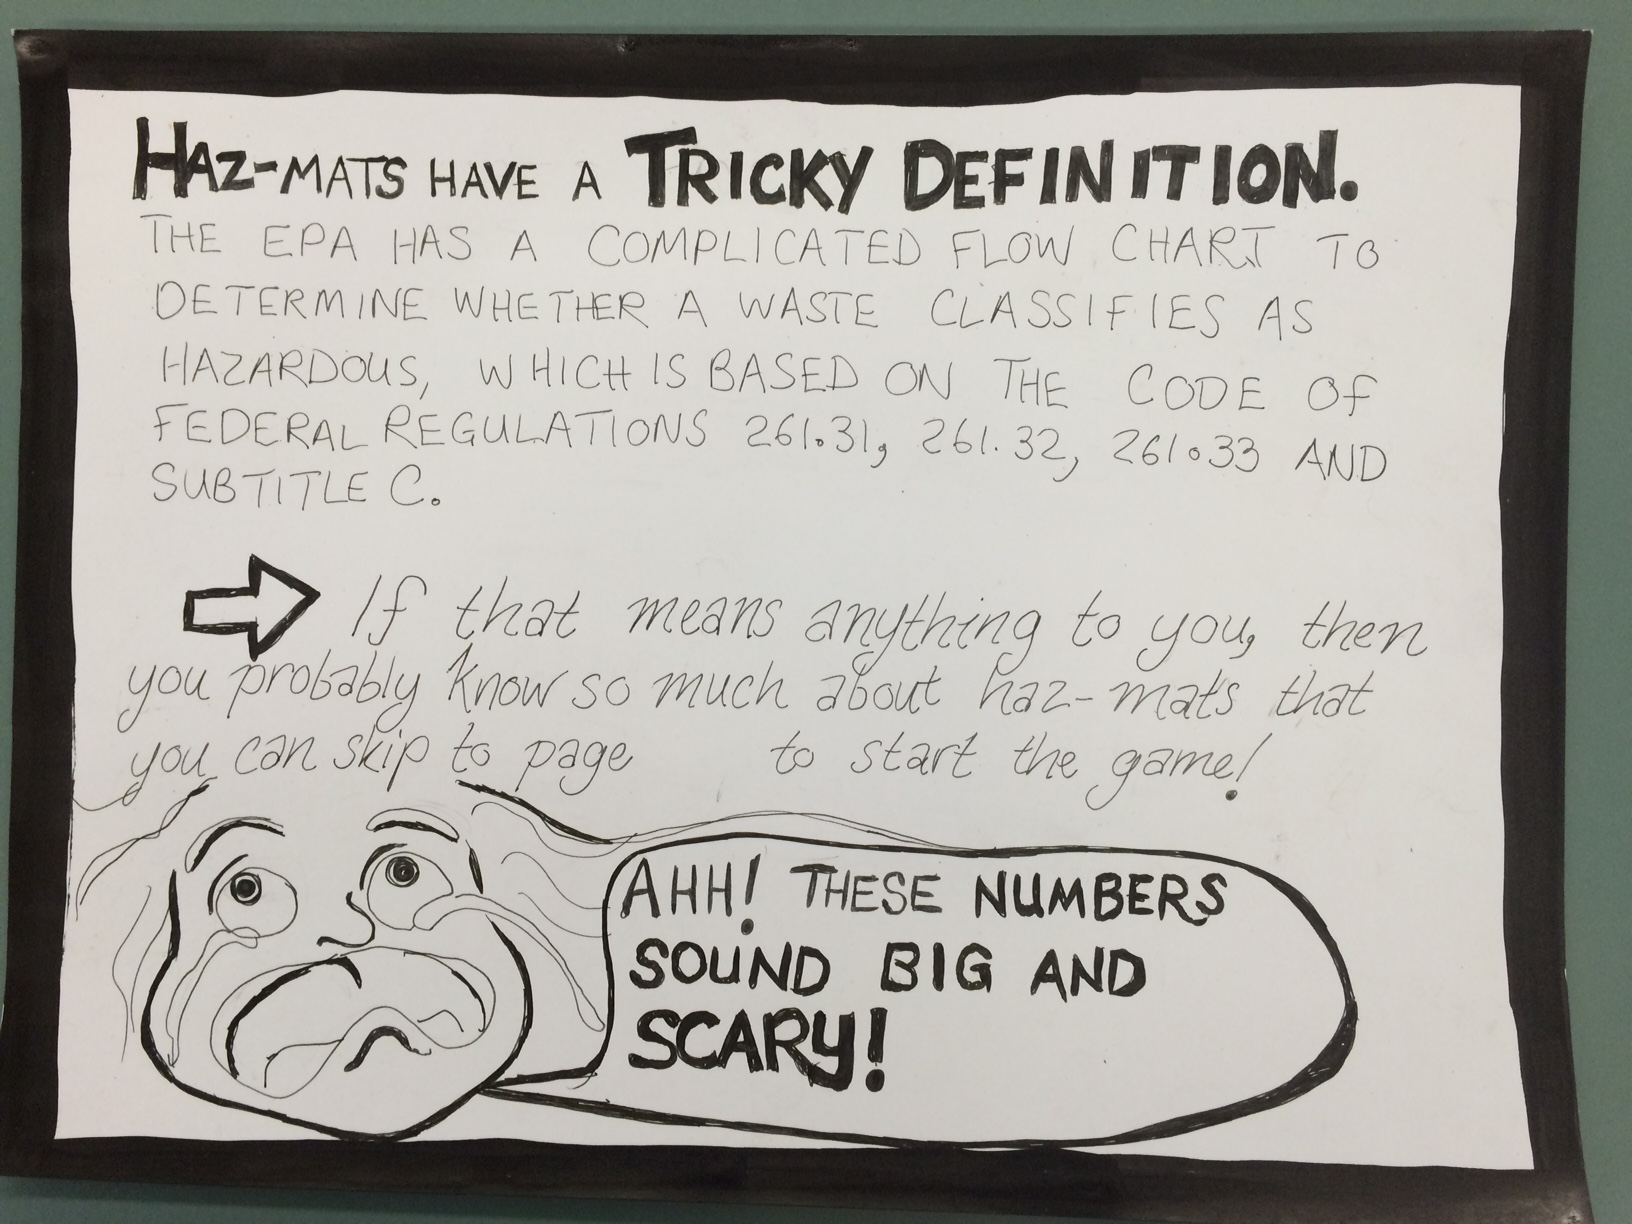 HAZ-MATS HAVE A TRICKY DEFINITION.
THE EPA HAS A COMPLICATED FLOW CHART TO
DETERMINE WHETHER A WASTE CLASSIFIES AS
HAZARDOUS, WHICH IS BASED ON THE CODE OF
FEDERAL REGULATIONS 261.31, 261.32, 261.33 AND
SUBTITLE C.
If that means anything to you, then
you probably know so much about haz-mats that
you can skip to page to start the game!
AHH! THESE NUMBERS
SOUND BIG AND
SCARY!